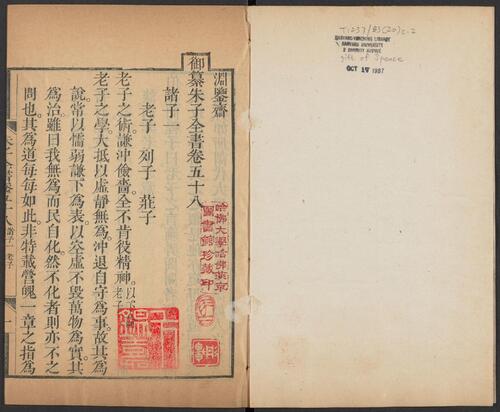 淵鑒齋
御纂朱子全書卷五十八
諸子一
老子 列子 莊子
老子之術謙沖儉嗇全不肯役精神 以下老子
老子之學大抵以虛靜無為沖退自守為事故其為
說常以懦弱謙下為表以空虛不毀萬物為實其
為治雖曰我無為而民自化然不化者則亦不之
問也其為道每每如此非特載營魄一章之指為
朱子全書卷五十八 諸子一 老子 一
哈佛大學哈佛燕京
圖書館珍藏印
T1237/83(20) c.2
HARVARD-YENCHING LIBRARY
HARVARD UNIVERSITY
2 DIVINITY AVENUE
gift of Spence
OCT 19 1987